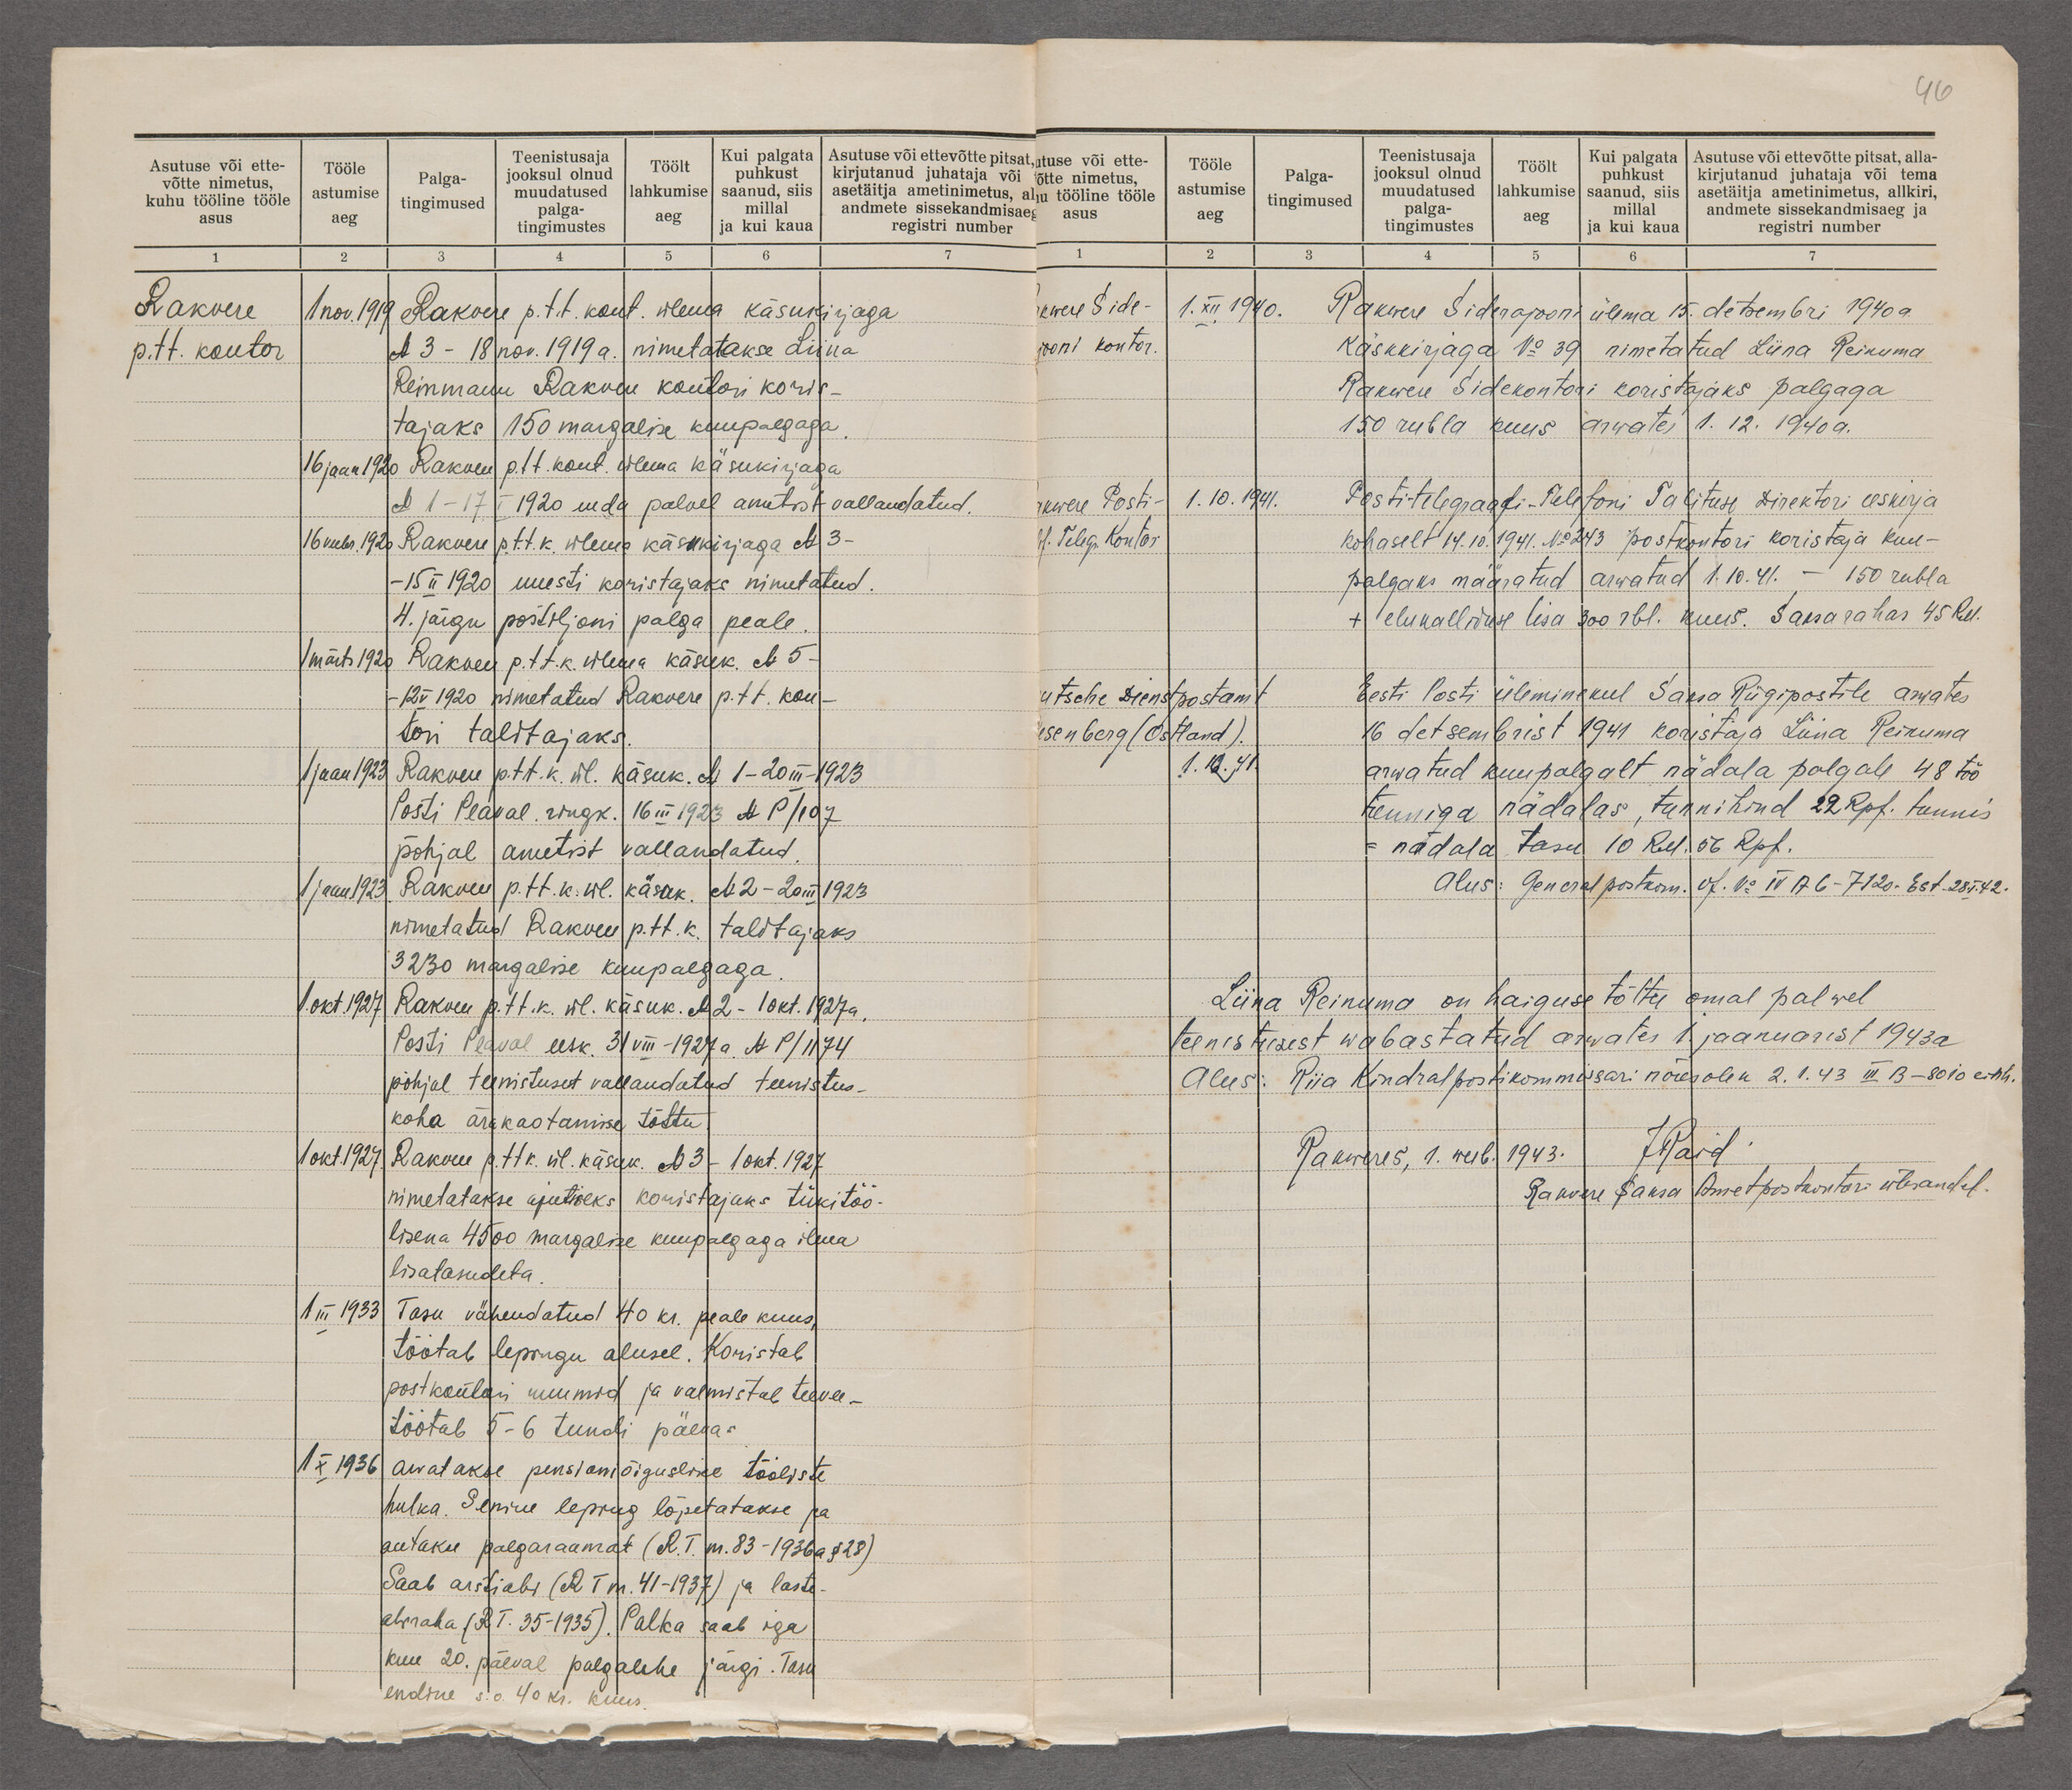 46
Asutuse või ette-
võtte nimetus,
kuhu tööline tööle
asus
Tööle
astumise
aeg
Palga-
tingimused
Teenistusaja
jooksul olnud
muudatused
palga-
tingimustes
Töölt
lahkumise
aeg
Kui palgata
puhkust
saanud, siis
millal
ja kui kaua
Asutuse või ettevõtte pitsat,
kirjutanud juhataja või
asetäitja ametinimetus, al
andmete sissekandmisaeg
registri number
1 2 3 4 5 6 7
Rakvere 1 nov. 1919 Rakvere p.t.t. kont. ülema käsukirjaga
p.tt. kontor № 3 - 18 nov. 1919 a. nimetatakse Liina
Reinmann Rakvere kontori koris-
tajaks 150 margalise kuupalgaga.
16 jaan 1920 Rakvere p.tt. kont. ülema käsukirjaga
№ 1 - 17 I 1920 enda palvel ametist vallandatud.
16 veebr. 1920 Rakvere p.tt.k. ülema käsukirjaga № 3 -
- 15 II 1920 uuesti koristajaks nimetatud.
4. järgu postiljoni palga peale.
1 märts 1920 Rakvere p.t.t.k. ülema käsuk. № 5 -
- 12 V 1920 nimetatud Rakvere p.tt. kon-
tori talitajaks.
1 jaan 1923 Rakvere p.tt.k. ül. käsuk. № 1 - 20 III - 1923
Posti Peaval. ringk. 16 III 1923 № P/107
põhjal ametist vallandatud.
1 jaan 1923 Rakvere p.tt.k. ül. käsuk. № 2 - 20 III 1923
nimetatud Rakvere p.tt.k. talitajaks
3230 margalise kuupalgaga.
1. okt. 1927 Rakvere p.tt.k. ül. käsuk. № 2 - 1 okt. 1927 a.
Posti Peaval eesk. 31 VIII - 1927 a. № P/1174
põhjal teenistusest vallandatud teenistus-
koha ärakaotamise tõttu.
1 okt. 1927 Rakvere p.tt.k. ül. käsuk. № 3 - 1 okt. 1927
nimetatakse ajutiseks koristajaks tükitöö-
lisena 4500 margalise kuupalgaga ilma
lisatasudeta.
1 III 1933 Tasu vähendatud 40 kr. peale kuus,
töötab lepingu alusel. Koristab
postkontori ruumid ja valmistab teevee -
töötab 5 - 6 tundi päevas
1 X 1936 arvatakse pensioniõiguslike tööliste
hulka. Senine leping lõpetatakse ja
antakse palgaraamat (R.T. nr. 83 - 1936 a § 28)
Saab arstiabi (R T nr. 41 - 1937) ja laste-
abiraha (R T. 35 - 1935). Palka saab iga
kuu 20. päeval palgalehe järgi. Tasu
endine s.o. 40 kr. kuus.
utuse või ette-
õtte nimetus,
hu tööline tööle
asus
Tööle
astumise
aeg
Palga-
tingimused
Teenistusaja
jooksul olnud
muudatused
palga-
tingimustes
Töölt
lahkumise
aeg
Kui palgata
puhkust
saanud, siis
millal
ja kui kaua
Asutuse või ettevõtte pitsat, alla-
kirjutanud juhataja või tema
asetäitja ametinimetus, allkiri,
andmete sissekandmisaeg ja
registri number
1 2 3 4 5 6 7
akwere Side- 1. XII 1940. Rakwere Siderajooni ülema 15. detsembri 1940 a
jooni kontor. Käskkirjaga № 39 nimetatud Liina Reinuma
Rakwere Sidekontori koristajaks palgaga
150 rubla kuus arwates 1. 12. 1940 a.
akwere Posti- 1. 10. 1941. Posti-telegraafi-Telefoni Talituse Direktori eeskirja
lf. Telegr. Kontor kohaselt 14.10.1941. № 243 postkontori koristaja kuu-
palgaks määratud arwatud 1.10.41. - 150 rubla
+ elukalliduse lisa 300 rbl. kuus. Saksa rahas 45 RM.
utsche Dienstpostamt Eesti Posti üleminekul Saksa Riigipostile arwates
esenberg (Ostland). 16 detsembrist 1941 koristaja Liina Reinuma
1. 12. 41. arwatud kuupalgalt nädala palgale 48 töö
tunniga nädalas, tunnihind 22 Rpf. tunnis
= nädala tasu 10 RM. 56 Rpf.
Alus: Generalpostkom. Vf. № IV A 6 - 7120 - Est - 28.V.42.
Liina Reinuma on haiguse tõttu omal palwel
teenistusest wabastatud arwates 1. jaanuarist 1943 a
Alus: Riia Kindralpostikommissari nõusolek 2.1.43 III B - 8010
Rakweres, 1. weeb. 1943. J Raid
Rakvere Saksa Ametpostkontori ülesandel.